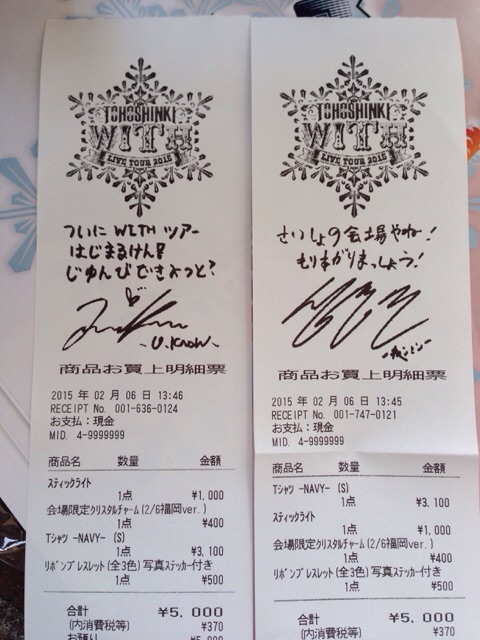 TOHOSHINKI
WITH
LIVE TOUR 2015
ついに WITH ツアー
はじまるけん!!
じゅんび できよっと?
-U.Know-
商品お買上明細票
2015 年 02 月 06 日 13:46
RECEIPT No. 001-636-0124
お支払:現金
MID. 4-9999999
商品名 数量 金額
スティックライト
1点 ¥1,000
会場限定クリスタルチャーム(2/6福岡ver.)
1点 ¥400
Tシャツ -NAVY- (S)
1点 ¥3,100
リボンブレスレット(全3色)写真ステッカー付き
1点 ¥500
合計 ¥5,000
(内消費税等) ¥370
お預り 5,000
TOHOSHINKI
WITH
LIVE TOUR 2015
さいしょの会場やね!
もりあがりましょう!
商品お買上明細票
2015 年 02 月 06 日 13:45
RECEIPT No. 001-747-0121
お支払:現金
MID. 4-9999999
商品名 数量 金額
Tシャツ -NAVY- (S)
1点 ¥3,100
スティックライト
1点 ¥1,000
会場限定クリスタルチャーム(2/6福岡ver.)
1点 ¥400
リボンブレスレット(全3色)写真ステッカー付き
1点 ¥500
合計 ¥5,000
(内消費税等) ¥370